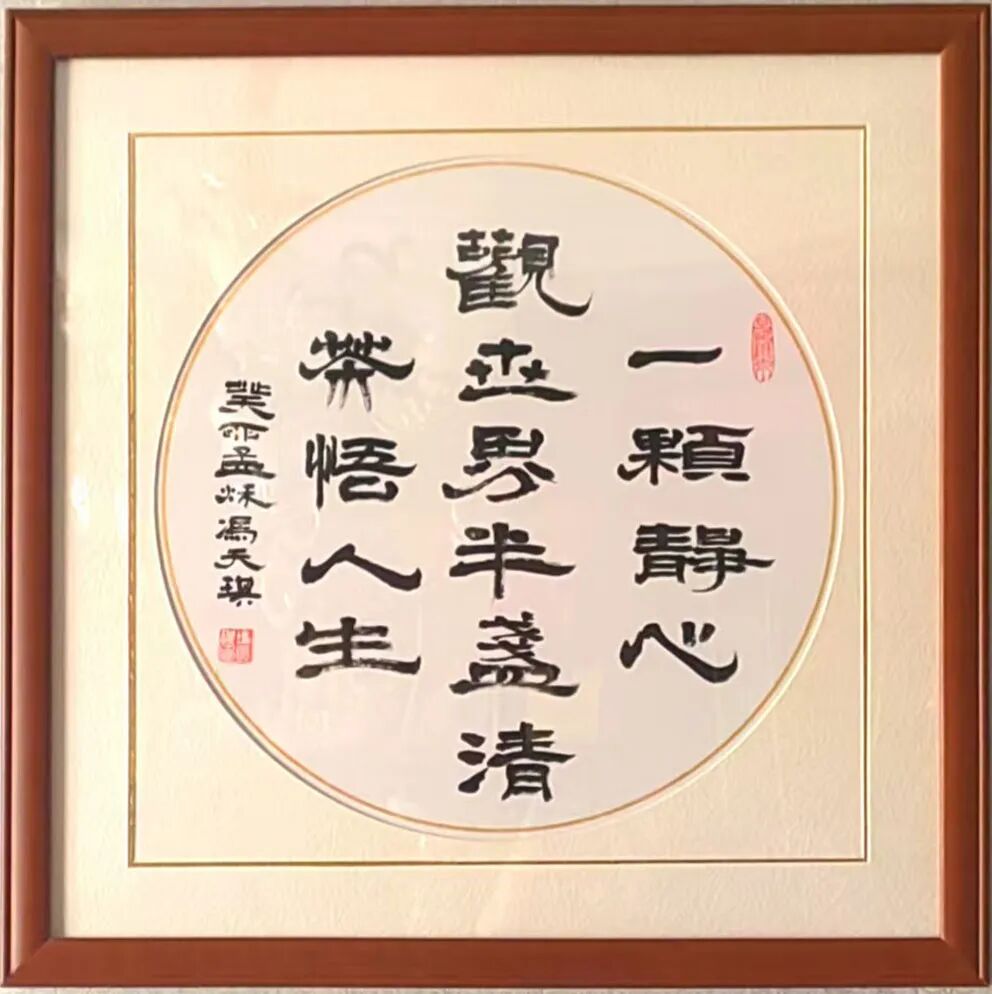 一顆靜心
觀世界半盞清
茶悟人生
癸卯孟秌馮天琪